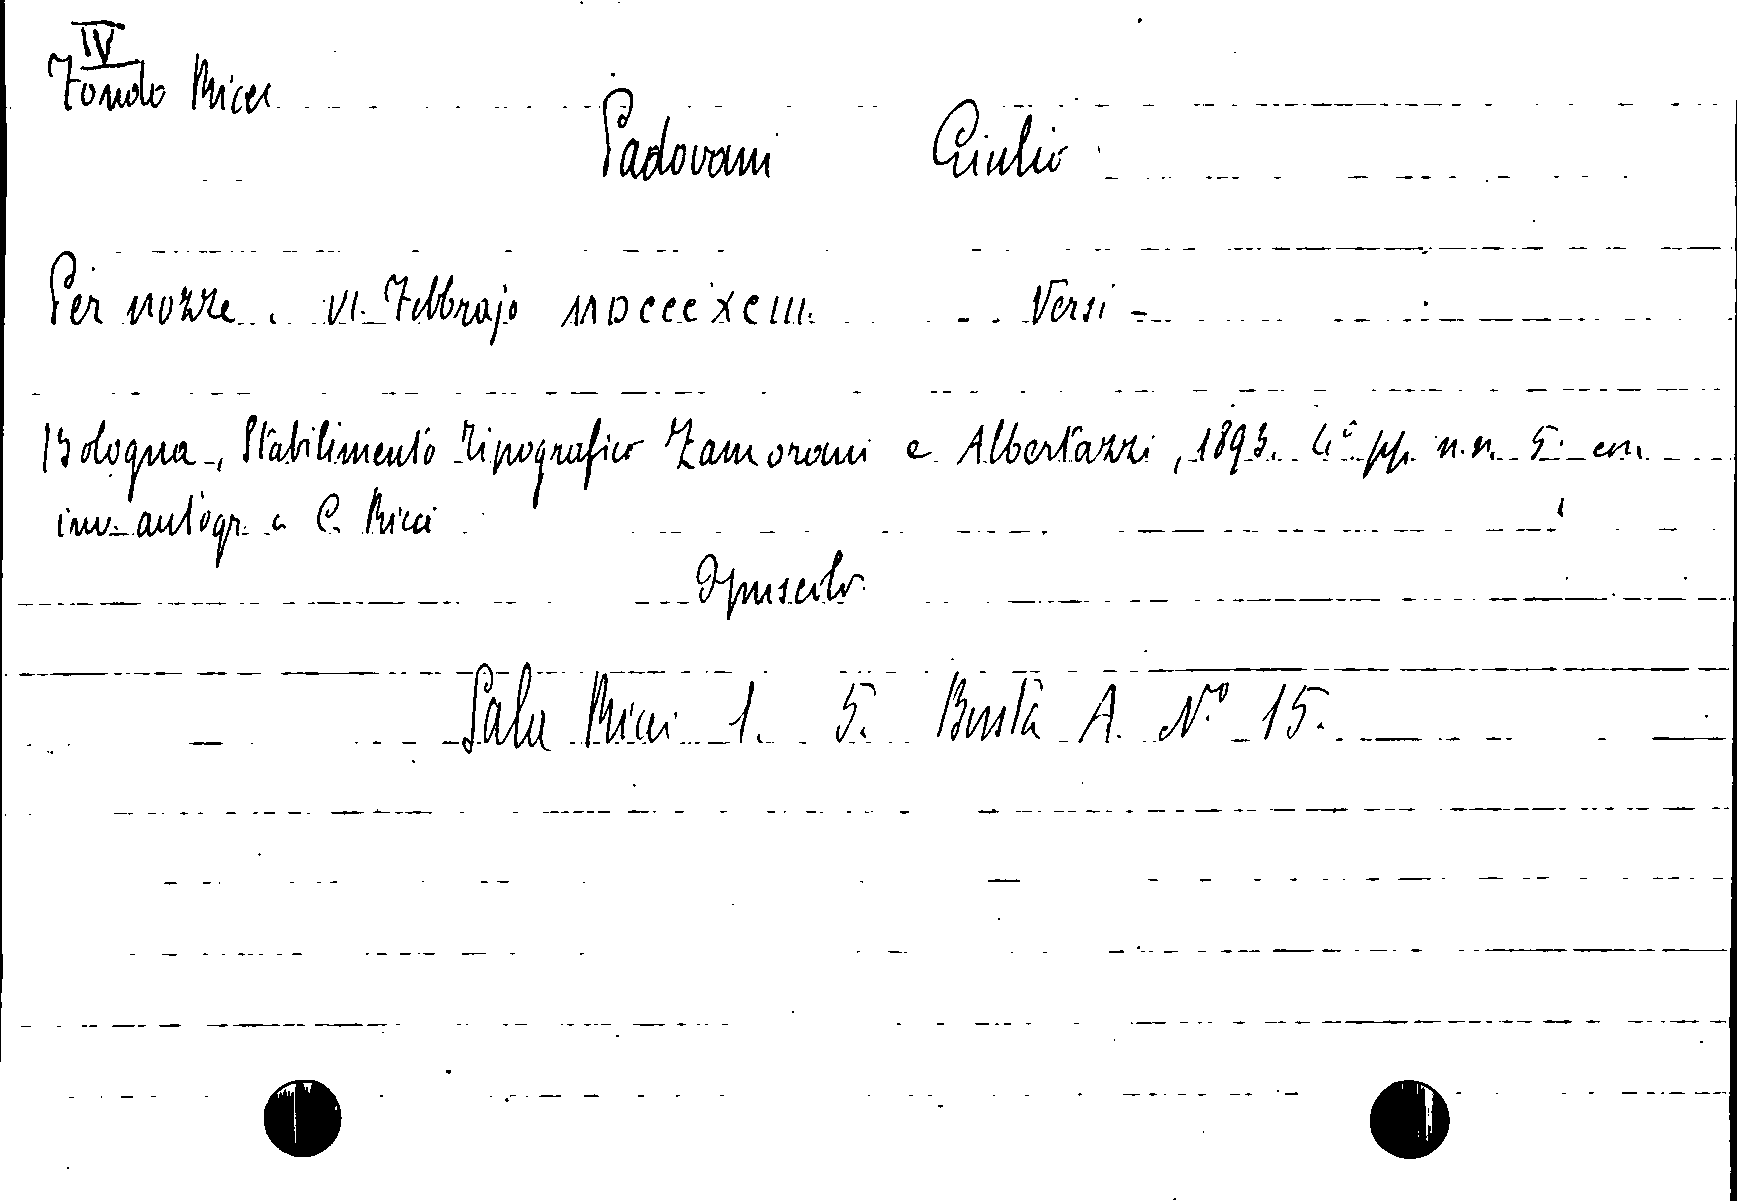 IV
Fondo Ricci
Padovani Giulio
Per nozze. VI. Febbrajo MDCCCXCIII. - Versi -
Bologna, Stabilimento Tipografico Zamorani e Albertazzi, 1893. 4° pp. n.n. 5. con
inv. autogr. a C. Ricci
Opuscolo
Sala Ricci 1. 5. Busta A. N.° 15.